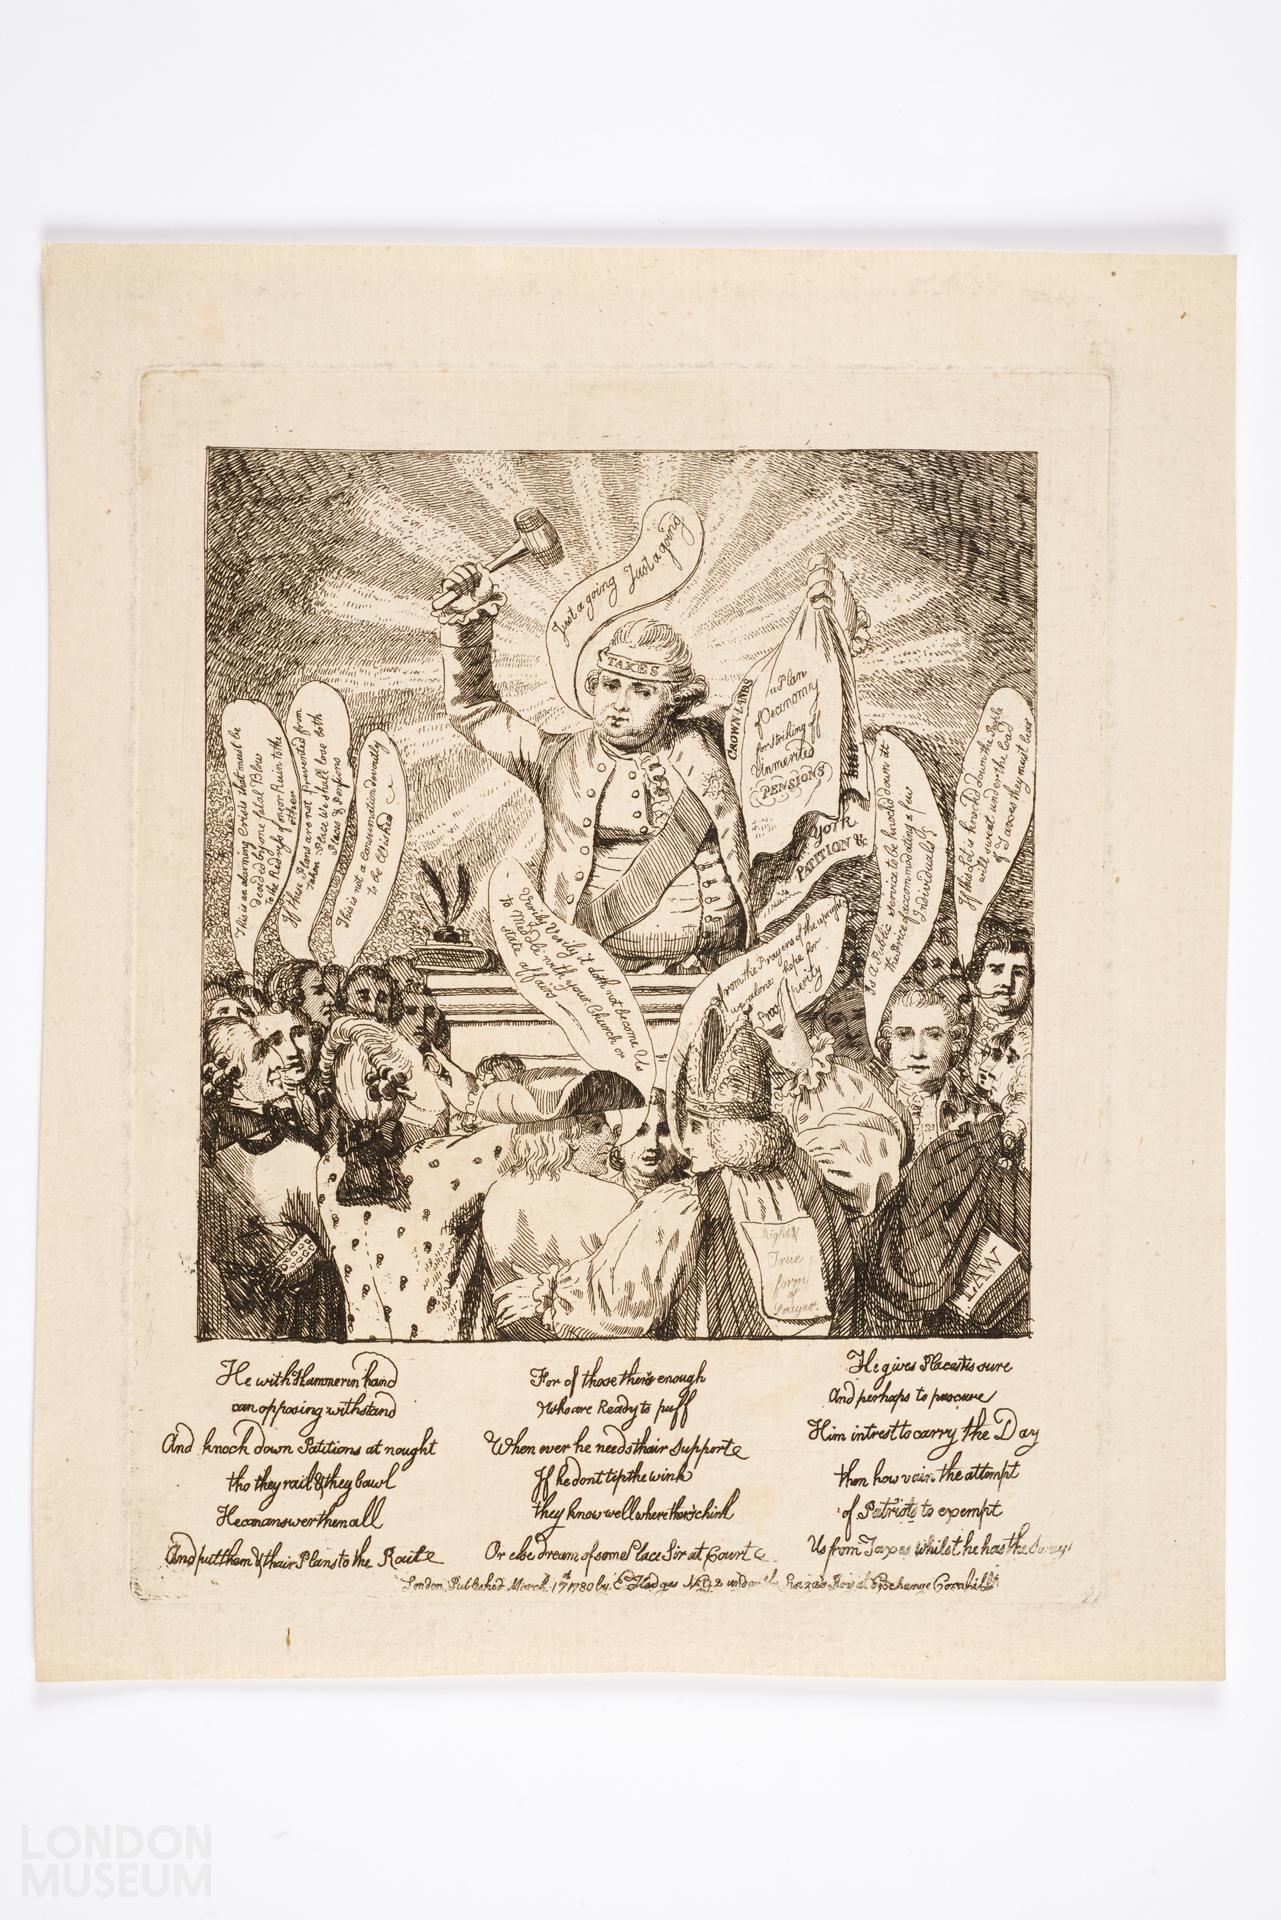 Just a going Just a going
TAXES
CROWN LANDS
a Plan
of Oeconomy
for striking off
Unmerited
PENSIONS
York
PATITION &c
This is an alarming Crisis that must be
decided by one fatal Blow
to the Redress of one or Ruin to the
other
If these Plans are not prevented from
taken Place We shall lose both
Places & Pensions
This is not a Consumation devoutly
to be Wished
Verily Verily it doth not become Us
to Meddle with your Church or
state affairs
From the Prayers of the upright
we alone hope for
Prosperity
Is A Public service to be knocked down at
the Price of accommodating a few
Individuals?
If this Lot is knocked Down the People
will sweat under the load
of Taxes they must bear
True
form
of
Prayer.
LAW
He with Hammer in hand
can opposing withstand
And knock down Patitions at nought
tho they rail & they bawl
He can answer them all
And put them & thair Plans to the Route
For of those there's enough
Who are Ready to puff
When ever he needs thair Supporte
If he dont tip the wink
they know well where ther's chink
Or else dream of some Place Sir at Courte
He gives Places tis sure
And perhaps to procure
Him intrest to carry the Day
then how vain the attempt
of Patriots to exempt
Us from Taxes whilst he has the Sway
London, Published March 1st 1780 by E Hedges No 92 under the Royal Exchange Cornhill
LONDON
MUSEUM